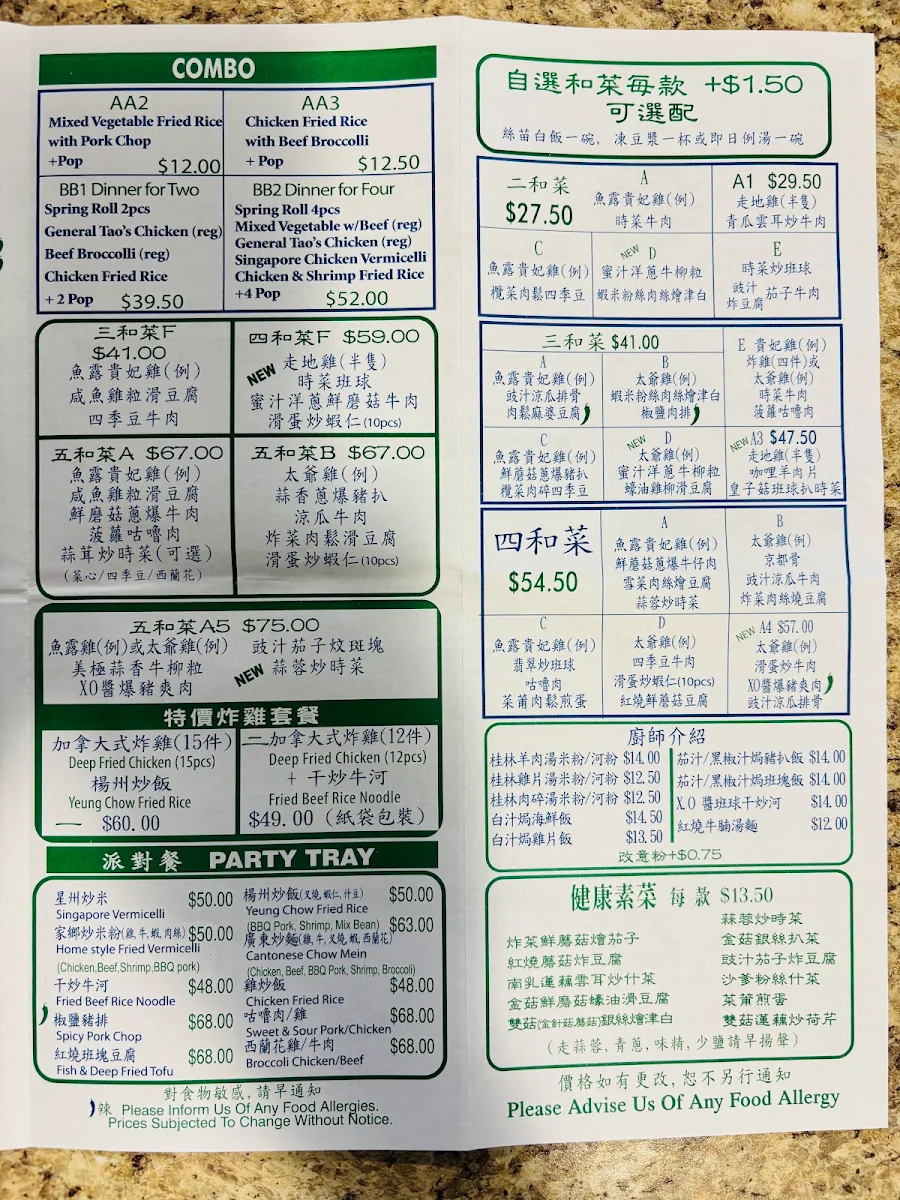 COMBO
AA2
Mixed Vegetable Fried Rice
with Pork Chop
+Pop $12.00
AA3
Chicken Fried Rice
with Beef Broccolli
+ Pop $12.50
BB1 Dinner for Two
Spring Roll 2pcs
General Tao's Chicken (reg)
Beef Broccolli (reg)
Chicken Fried Rice
+ 2 Pop $39.50
BB2 Dinner for Four
Spring Roll 4pcs
Mixed Vegetable w/Beef (reg)
General Tao's Chicken (reg)
Singapore Chicken Vermicelli
Chicken & Shrimp Fried Rice
+4 Pop $52.00
三和菜F
$41.00
魚露貴妃雞(例)
咸魚雞粒滑豆腐
四季豆牛肉
四和菜F $59.00
NEW 走地雞(半隻)
時菜班球
蜜汁洋蔥鮮蘑菇牛肉
滑蛋炒蝦仁(10pcs)
五和菜A $67.00
魚露貴妃雞(例)
咸魚雞粒滑豆腐
鮮磨菇蔥爆牛肉
菠蘿咕嚕肉
蒜茸炒時菜(可選)
(菜心/四季豆/西蘭花)
五和菜B $67.00
太爺雞(例)
蒜香蔥爆豬扒
涼瓜牛肉
炸菜肉鬆滑豆腐
滑蛋炒蝦仁(10pcs)
五和菜A5 $75.00
魚露雞(例)或太爺雞(例)
美極蒜香牛柳粒
XO醬爆豬爽肉
豉汁茄子炆斑塊
NEW 蒜蓉炒時菜
特價炸雞套餐
加拿大式炸雞(15件)
Deep Fried Chicken (15pcs)
楊州炒飯
Yeung Chow Fried Rice
一 $60.00
二加拿大式炸雞(12件)
Deep Fried Chicken (12pcs)
+ 干炒牛河
Fried Beef Rice Noodle
$49.00 (紙袋包裝)
派對餐 PARTY TRAY
星州炒米 $50.00
Singapore Vermicelli
家鄉炒米粉(雞,牛,蝦,肉絲) $50.00
Home style Fried Vermicelli
(Chicken,Beef,Shrimp,BBQ pork)
干炒牛河 $48.00
Fried Beef Rice Noodle
椒鹽豬排 $68.00
Spicy Pork Chop
紅燒班塊豆腐 $68.00
Fish & Deep Fried Tofu
楊州炒飯(叉燒,蝦仁,什豆) $50.00
Yeung Chow Fried Rice
(BBQ Pork, Shrimp, Mix Bean) $63.00
廣東炒麵(雞,牛,叉燒,蝦,西蘭花)
Cantonese Chow Mein
(Chicken, Beef, BBQ Pork, Shrimp, Broccoli)
雞炒飯 $48.00
Chicken Fried Rice
咕嚕肉/雞 $68.00
Sweet & Sour Pork/Chicken
西蘭花雞/牛肉 $68.00
Broccoli Chicken/Beef
對食物敏感,請早通知
辣 Please Inform Us Of Any Food Allergies.
Prices Subjected To Change Without Notice.
自選和菜每款 +$1.50
可選配
絲苗白飯一碗, 凍豆漿一杯或即日例湯一碗
二和菜
$27.50
A
魚露貴妃雞(例)
時菜牛肉
A1 $29.50
走地雞(半隻)
青瓜雲耳炒牛肉
C
魚露貴妃雞(例)
欖菜肉鬆四季豆
NEW D
蜜汁洋蔥牛柳粒
蝦米粉絲肉絲燴津白
E
時菜炒班球
豉汁茄子牛肉
炸豆腐
三和菜 $41.00
A
魚露貴妃雞(例)
豉汁涼瓜排骨
肉鬆麻婆豆腐
B
太爺雞(例)
蝦米粉絲肉絲燴津白
椒鹽肉排
E 貴妃雞(例)
炸雞(四件)或
太爺雞(例)
時菜牛肉
菠蘿咕嚕肉
C
魚露貴妃雞(例)
鮮蘑菇蔥爆豬扒
欖菜肉碎四季豆
NEW D
太爺雞(例)
蜜汁洋蔥牛柳粒
蠔油雞柳滑豆腐
NEW A3 $47.50
走地雞(半隻)
咖哩羊肉片
皇子菇班球扒時菜
四和菜
$54.50
A
魚露貴妃雞(例)
鮮蘑菇蔥爆牛仔肉
雪菜肉絲燴豆腐
蒜蓉炒時菜
B
太爺雞(例)
京都骨
豉汁涼瓜牛肉
炸菜肉絲燒豆腐
C
魚露貴妃雞(例)
翡翠炒班球
咕嚕肉
菜莆肉鬆煎蛋
D
太爺雞(例)
四季豆牛肉
滑蛋炒蝦仁(10pcs)
紅燒鮮蘑菇豆腐
NEW A4 $57.00
太爺雞(例)
滑蛋炒牛肉
XO醬爆豬爽肉
豉汁涼瓜排骨
廚師介紹
桂林羊肉湯米粉/河粉 $14.00
桂林雞片湯米粉/河粉 $12.50
桂林肉碎湯米粉/河粉 $12.50
白汁焗海鮮飯 $14.50
白汁焗雞片飯 $13.50
茄汁/黑椒汁焗豬扒飯 $14.00
茄汁/黑椒汁焗班塊飯 $14.00
X.O 醬班球干炒河 $14.00
紅燒牛腩湯麵 $12.00
改意粉+$0.75
健康素菜 每款 $13.50
炸菜鮮蘑菇燴茄子
紅燒蘑菇炸豆腐
南乳蓮藕雲耳炒什菜
金菇鮮磨菇蠔油滑豆腐
雙菇(金針菇蘑菇)銀絲燴津白
蒜蓉炒時菜
金菇銀絲扒菜
豉汁茄子炸豆腐
沙爹粉絲什菜
菜莆煎蛋
雙菇蓮藕炒荷芹
(走蒜蓉,青蔥,味精,少鹽請早揚聲)
價格如有更改,恕不另行通知
Please Advise Us Of Any Food Allergy